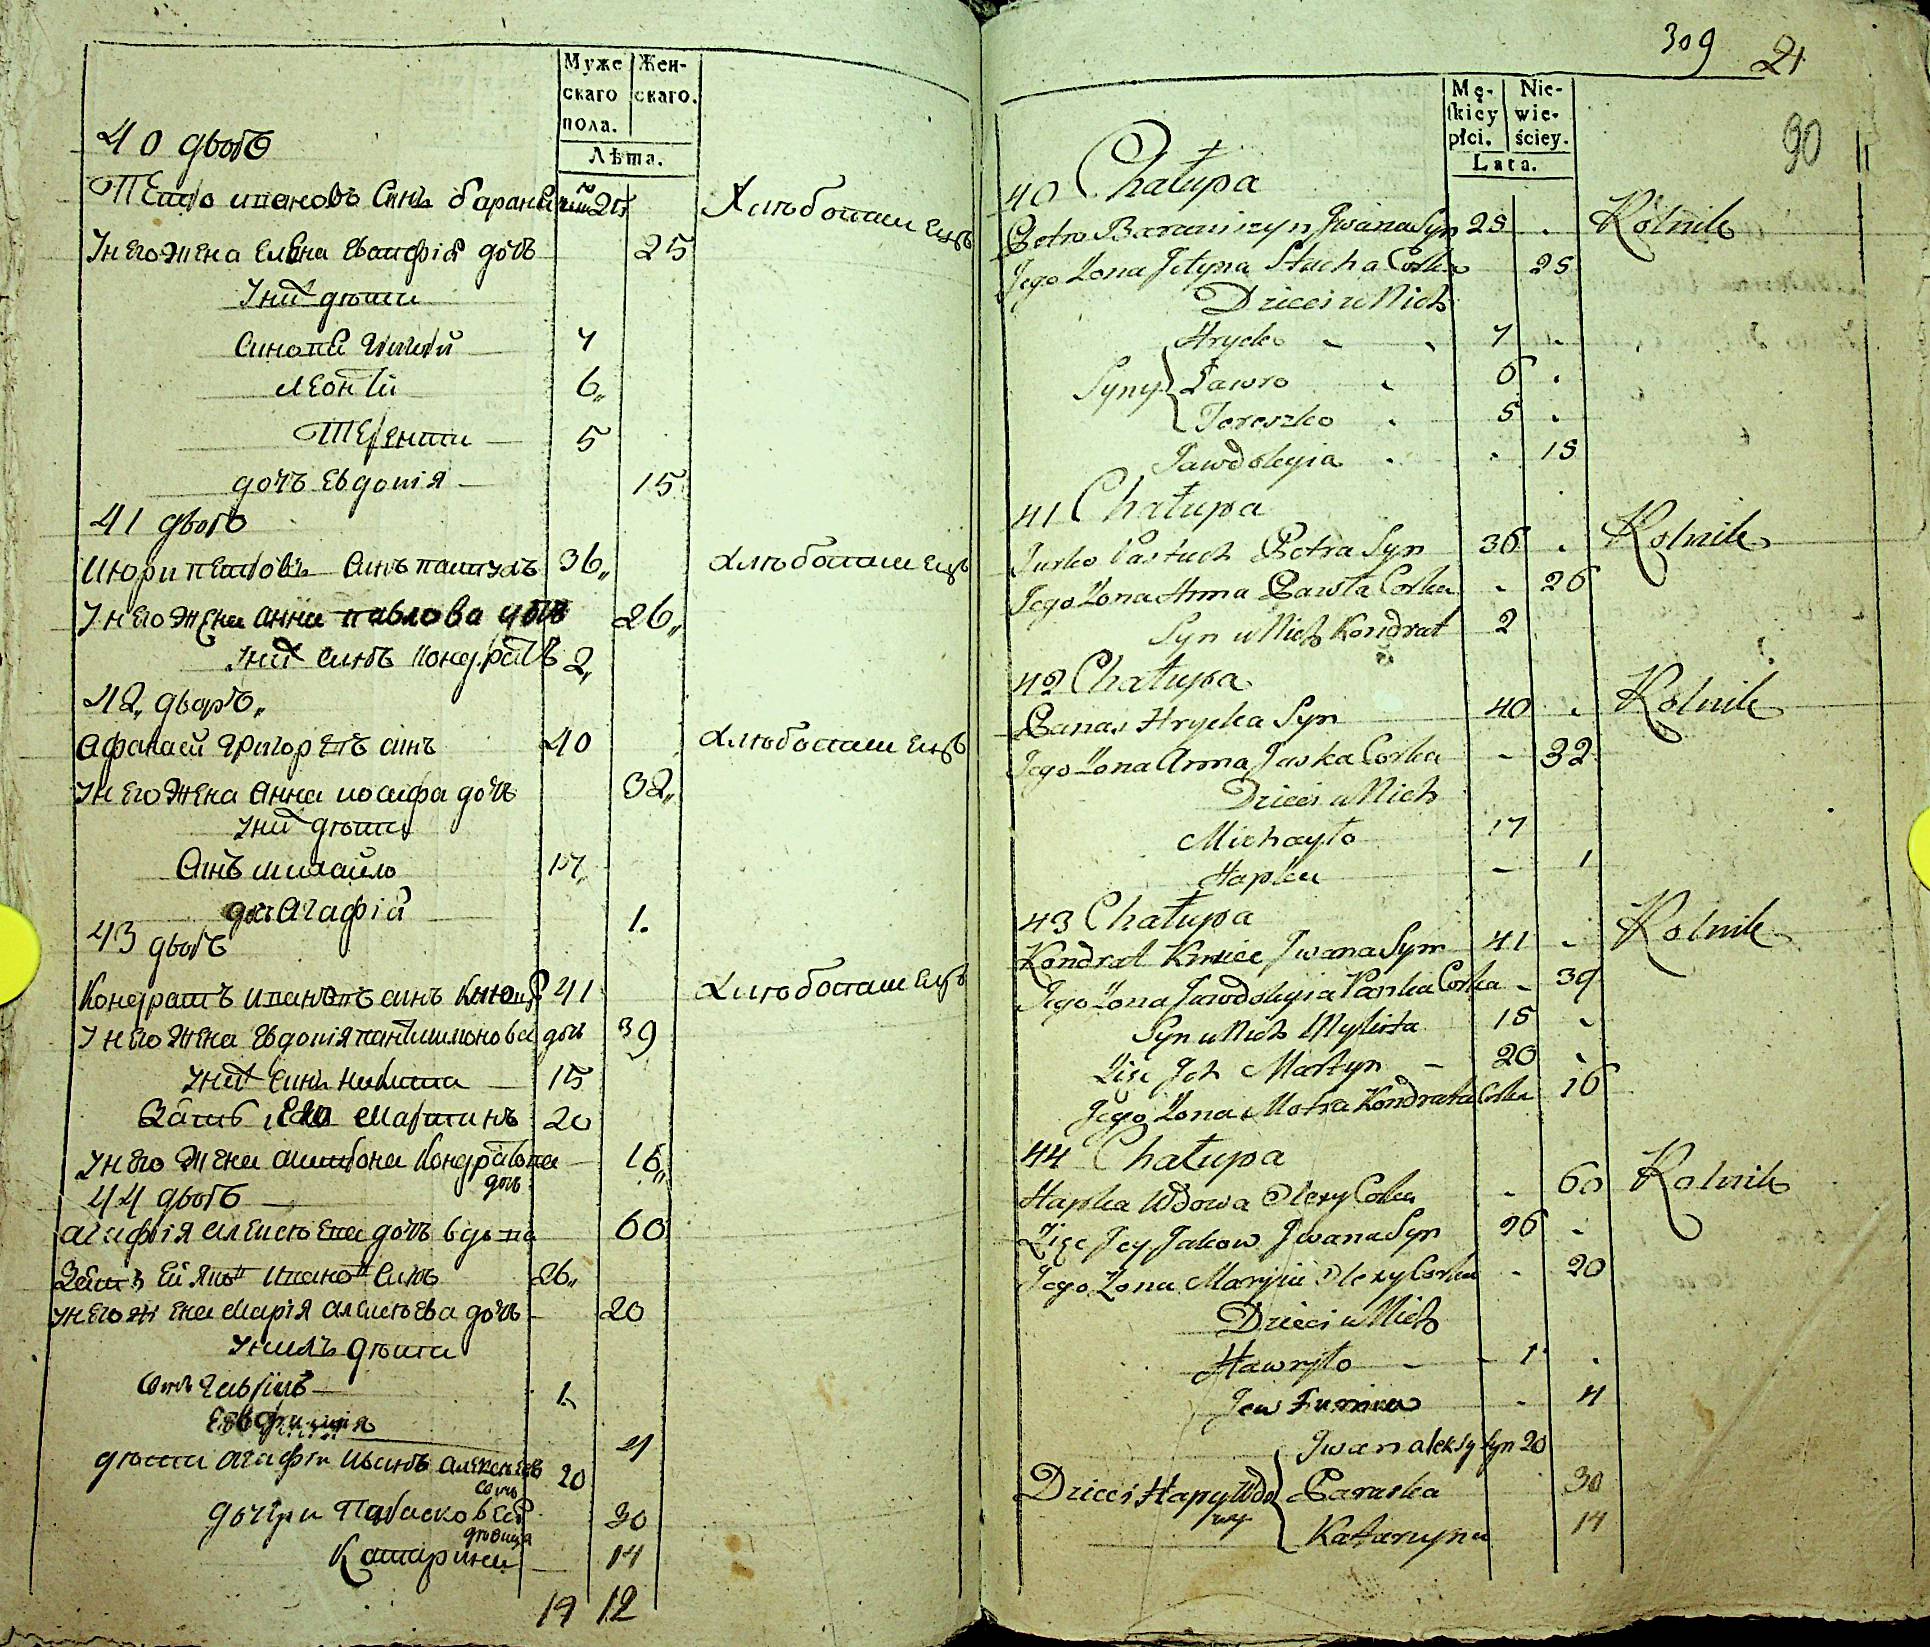 Муже
скаго
пола.
Жен-
скаго.
Лѣта.
40 дворъ
Петро ивановъ синъ 25 Хлѣбопашецъ
У него жена Елена дочъ 25
У них дѣти
синове Григорий 7
леонтий 6
Терентий 5
дочъ Евдокія 15
41 дворъ
Июрий петровъ синъ пастухъ 36 хлѣбопашецъ
У него жена анна павлова дочъ 26
У них синъ Кондратъ 2
42 дворъ
Афанасий Григориевъ синъ 40 хлѣбопашецъ
У него жена Анна иосифа дочъ 32
У них дѣти
Синъ михайло 17
дочъ Агафія 1.
43 дворъ
Кондратъ ивановъ синъ 41 хлѣбопашецъ
У него жена Евдокія пантилимонова дочъ 39
У них синъ никита 15
Зять его мартинъ 20
У него жена Кондратова дочъ 16
44 дворъ
агафія алексѣева дочъ вдова 60
Зять ей яковъ ивановъ синъ 26
У него жена марія алексѣева дочъ 20
У нихъ дѣти
синъ гаврило 1
Евфимія 4
дѣти агафіи иванъ алексѣевъ синъ 20
дочери Парасковея 30
дѣвица
Катарина 14
19 12
309 21
90
Mę-
skiey
płci.
Nie-
wie-
ściey.
Lata.
40 Chałupa
Petro Baraniczyn Jwana Syn 25 Rolnik
Jego Żona Stacha Corka 25
Dzieci u Nich
Hrycko 7
Syny Ławro 6
Tereszko 5
Jawdokyia 15
41 Chałupa
Jurko Pastuch Petra Syn 36 Rolnik
Jego Żona Anna Pawła Corka 26
Syn u Nich Kondrat 2
42 Chałupa
Panas Hrycka Syn 40 Rolnik
Jego Żona Anna Jaska Corka 32
Dzieci u Nich
Michayło 17
Hapka 1
43 Chałupa
Kondrat Kmiec Jwana Syn 41 Rolnik
Jego Żona Jawdokyia Paska Corka 39
Syn u Nich Mykita 15
Zięc Ich Martyn 20
Jego Żona Motra Kondrata Corka 16
44 Chałupa
Hapka Wdowa Olexy Corka 60 Rolnik
Zięc Jey Jakow Jwana Syn 26
Jego Żona Maryia Olexy Corka 20
Dzieci u Nich
Hawryło 1
Jewfumia 4
Jwan aleksy Syn 20
Dzieci Hapy Wdowy Paraska 30
Kataryna 14